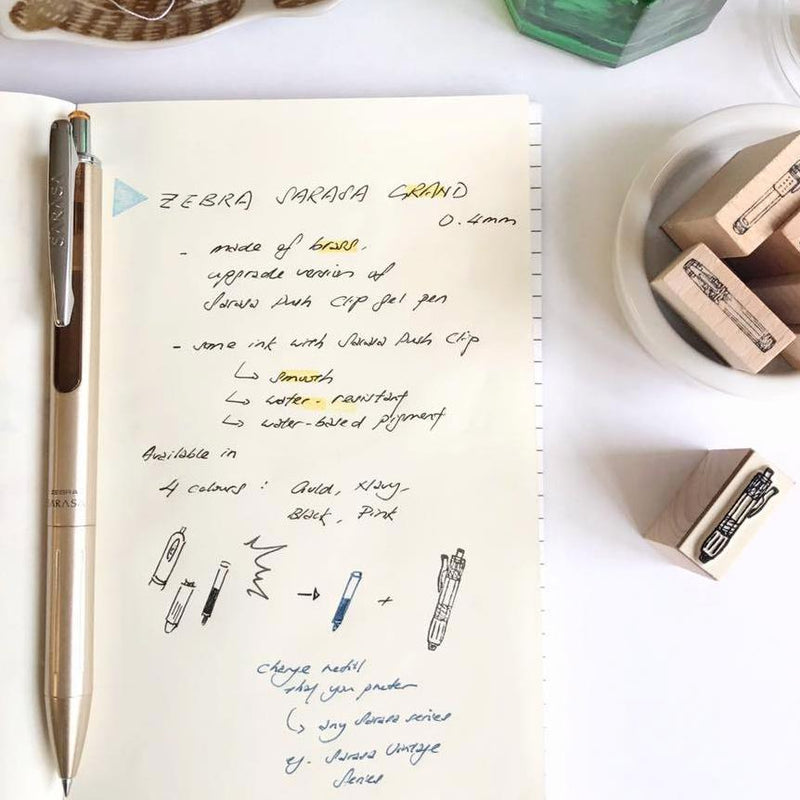 SARASA
ZEBRA
SARASA
ZEBRA SARASA GRAND
0.4mm
- made of brass.
upgrade version of
Sarasa Push Clip gel pen
- same ink with Sarasa Push Clip
↳ smooth
↳ water-resistant
↳ water-based pigment
Available in
4 colours : Gold, Navy,
Black, Pink
→ +
change refill
that you prefer
↳ any Sarasa series
eg. Sarasa Vintage
Series